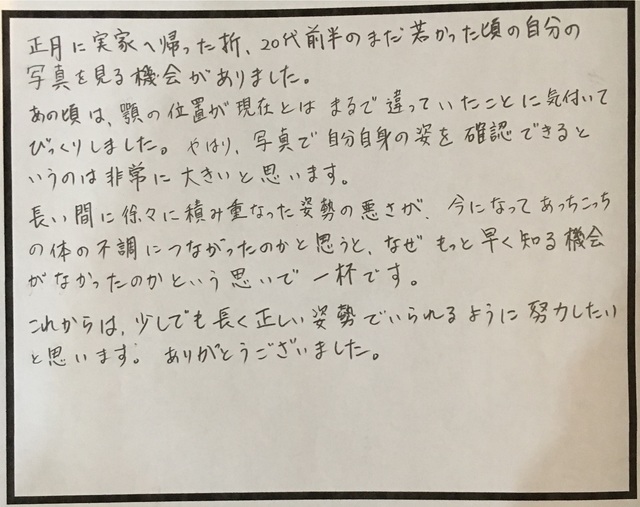 正月に実家へ帰った折、20代前半のまだ若かった頃の自分の
写真を見る機会がありました。
あの頃は、顎の位置が現在とはまるで違っていたことに気付いて
びっくりしました。やはり、写真で自分自身の姿を確認できると
いうのは非常に大きいと思います。
長い間に徐々に積み重なった姿勢の悪さが、今になってあっちこっち
の体の不調につながったのかと思うと、なぜもっと早く知る機会
がなかったのかという思いで一杯です。
これからは、少しでも長く正しい姿勢でいられるように努力したい
と思います。ありがとうございました。